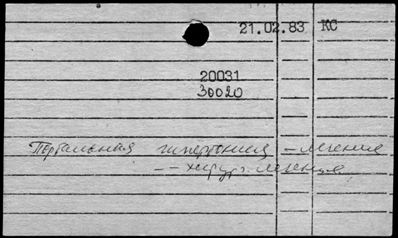 21.02.83 КС
20031
30020
Портальная гипертония – лечение
– – хирург. лечение